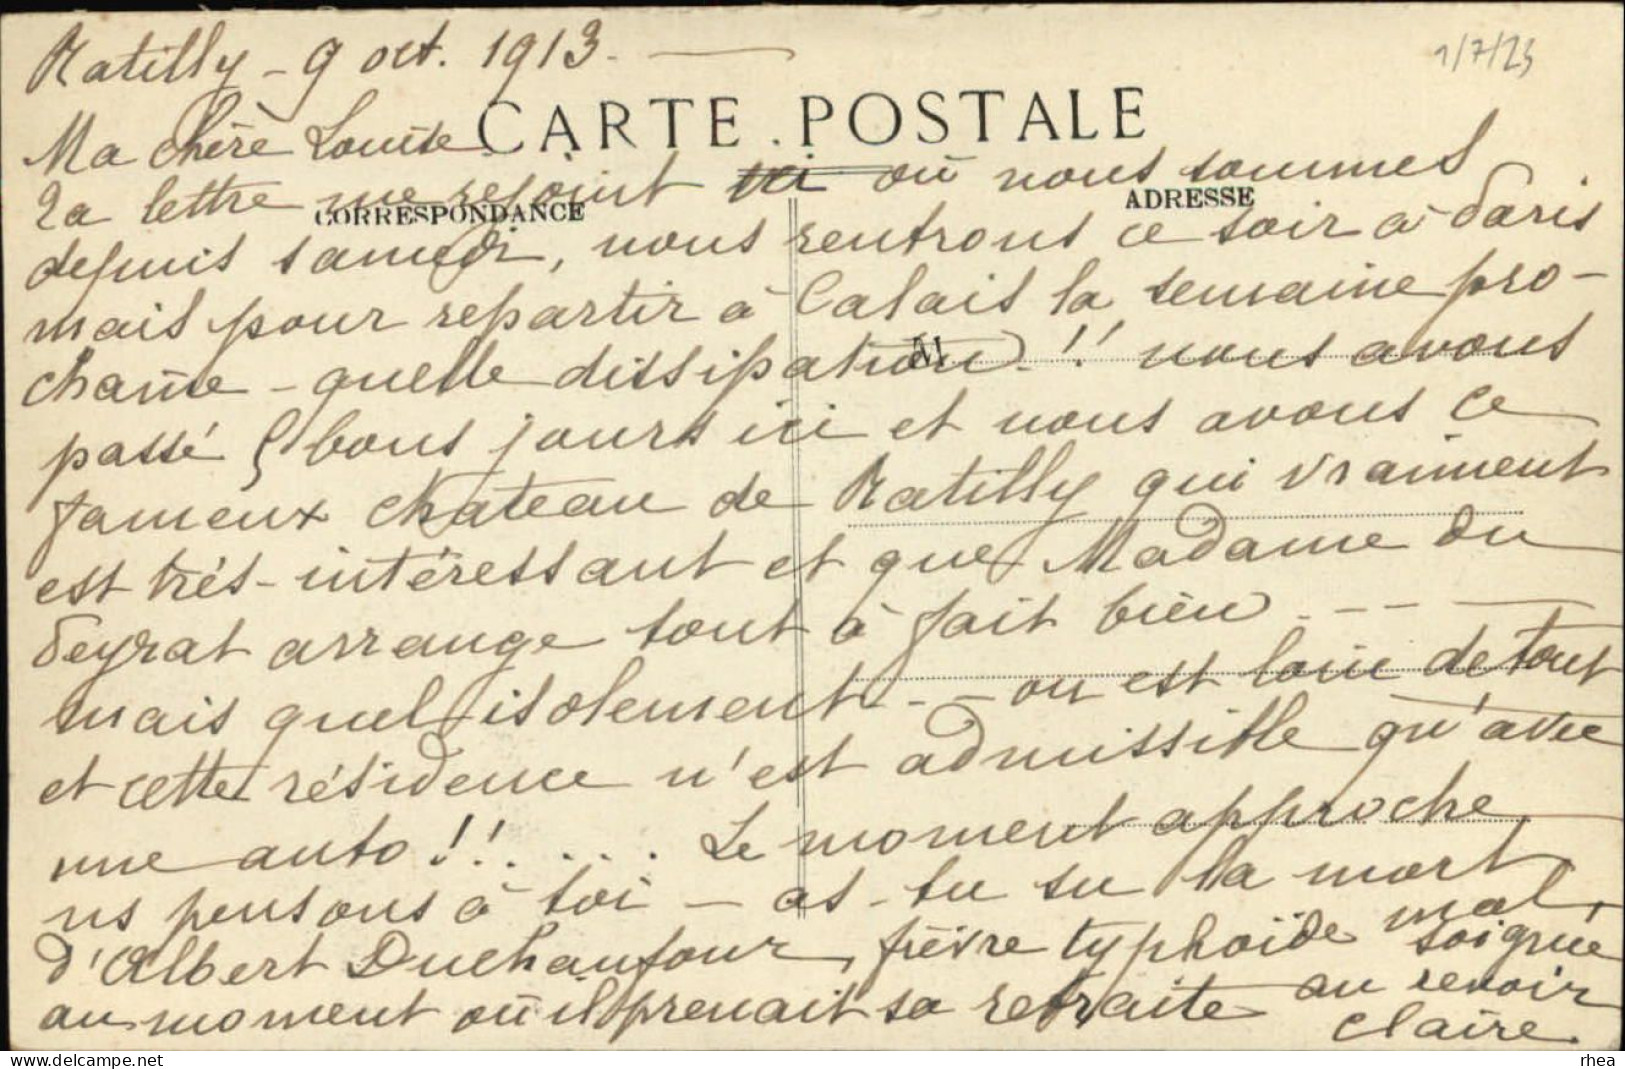 Ratilly - 9 oct. 1913.
1/7/23
CARTE POSTALE
Ma chère Louise
CORRESPONDANCE
ADRESSE
Ta lettre me rejoint ici où nous sommes
depuis samedi, nous rentrons ce soir à Paris
mais pour repartir à Calais la semaine pro-
chaine - quelle dissipation !! nous avons
M
passé 5 bons jours ici et nous avons ce
fameux chateau de Ratilly qui vraiment
est très-intéressant et que Madame du
Peyrat arrange tout à fait bien . - - -
mais quel isolement - - on est loin de tout
et cette résidence n'est admissible qu'avec
une auto !! . . . . Le moment approche
ns pensons à toi - as-tu su la mort
d'Albert Duchaufour, fièvre typhoïde mal soignée
au moment où il prenait sa retraite au revoir
Claire.
rhea